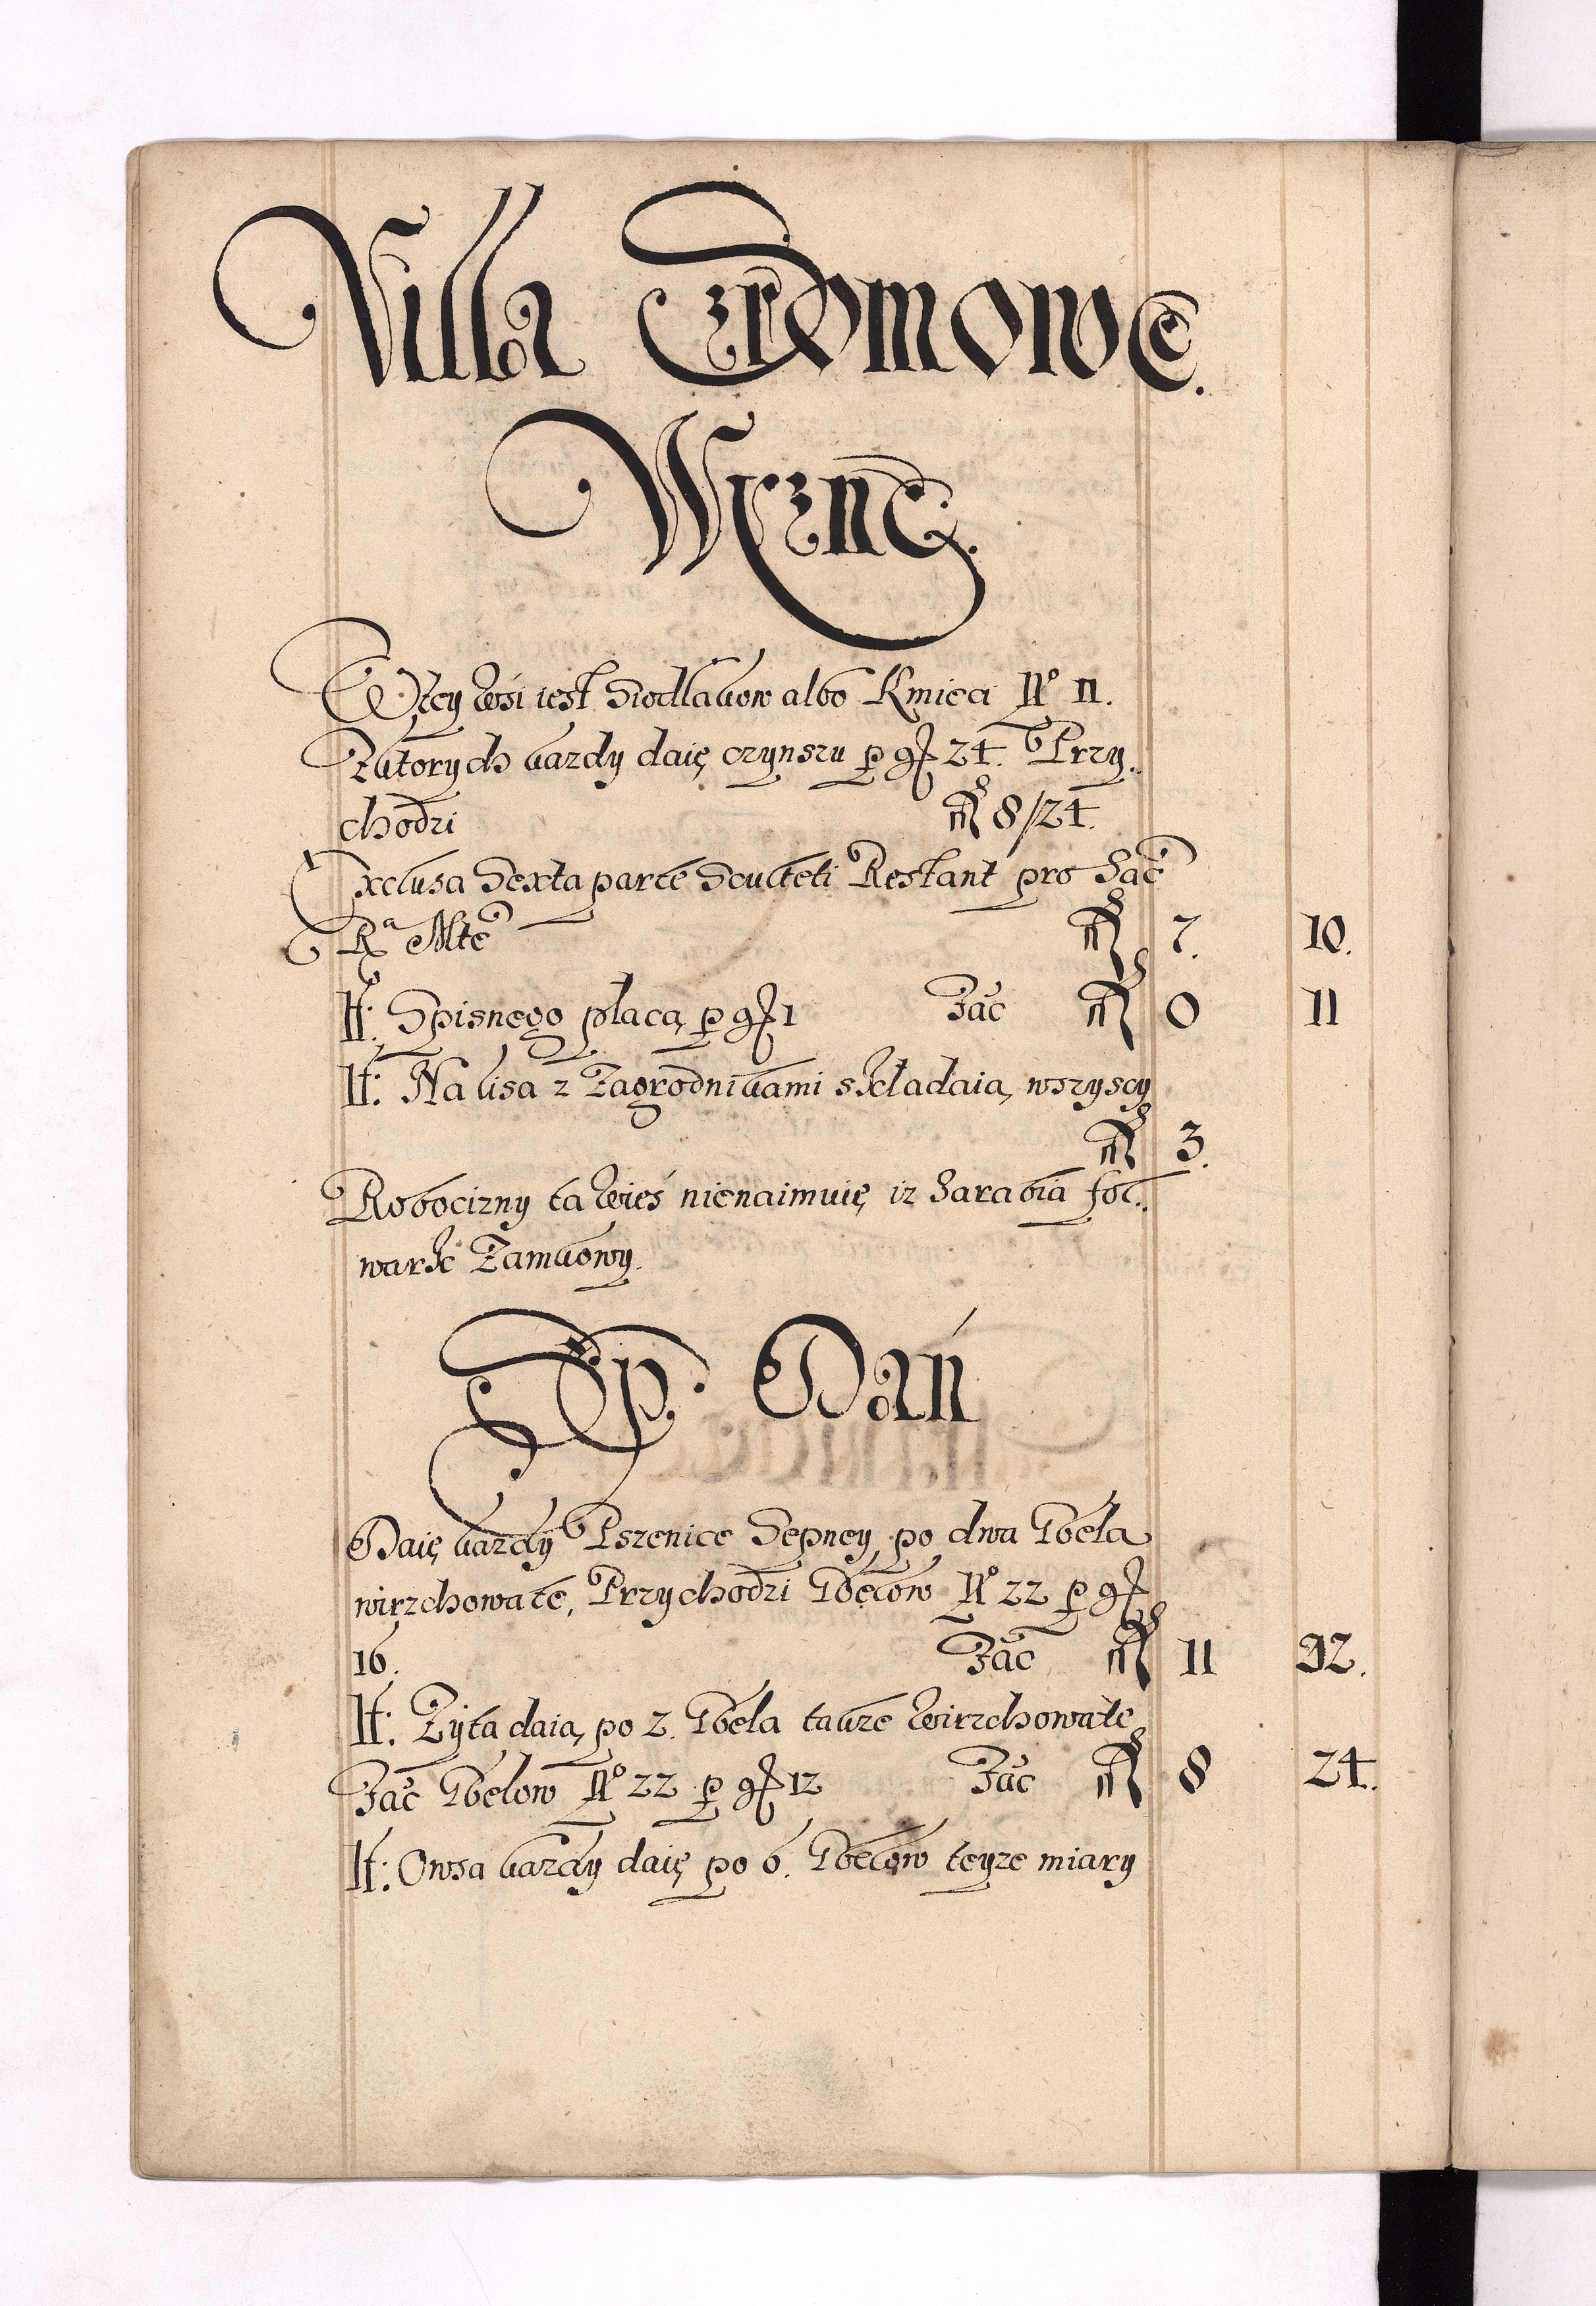 Villa Sromowce
Wyzne
W tey wsi iest Siodlakow albo Kmieci N° 11.
Z ktorych kazdy daię czynszu p gr 24. Przy
chodzi fl 8/24.
Exclusa Sexta parte Sculteti Restant pro Sac
Ra Mte fl 7. 10.
It: Spisnego płacą p gr 1 Fac fl 0 11
It: Na lisa z Zagrodnikami składaią wszyscy
fl 3.
Robocizny ta wieś nienaimuię iz Zarabia fol
wark Zamkowy.
Sp. Dań
Daię kazdy Pszenice Sepney po dwa Gbela
wirzchowate, Przychodzi Gbelow N° 22 p gr
16. Fac fl 11 22.
It: Zyta daią po 2. Gbela takze wirzchowate
Fac Gbelow N° 22 p gr 12 Fac fl 8 24.
It: Owsa kazdy daię po 6. Gbelow teyze miary